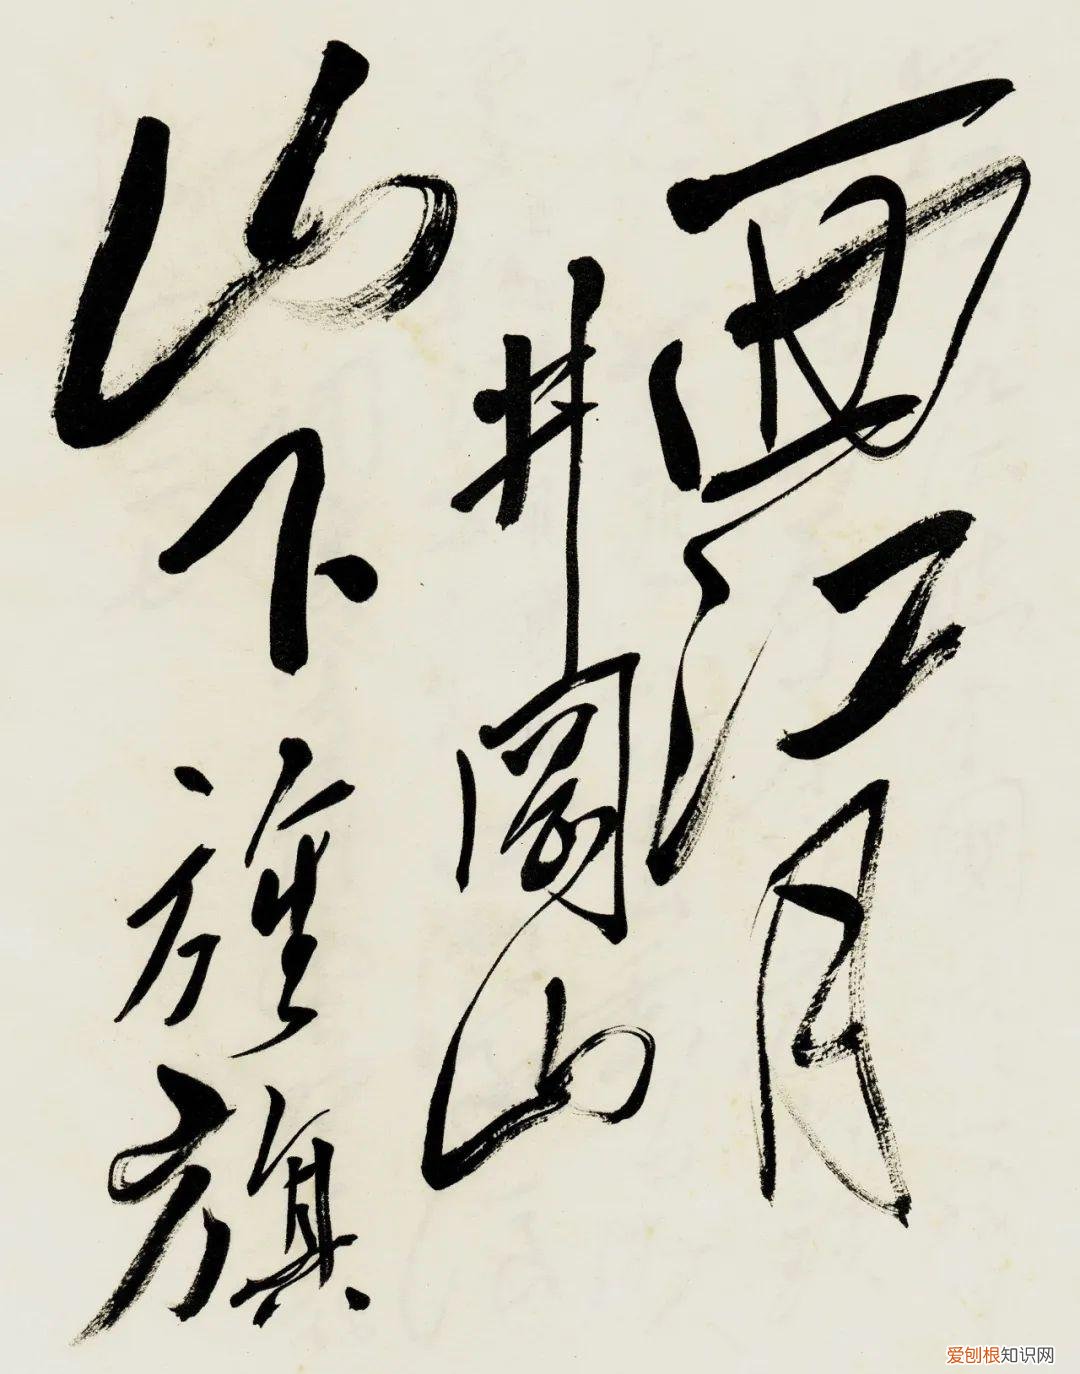 西江月
井岡山
山下旌旗
爱刨根知识网